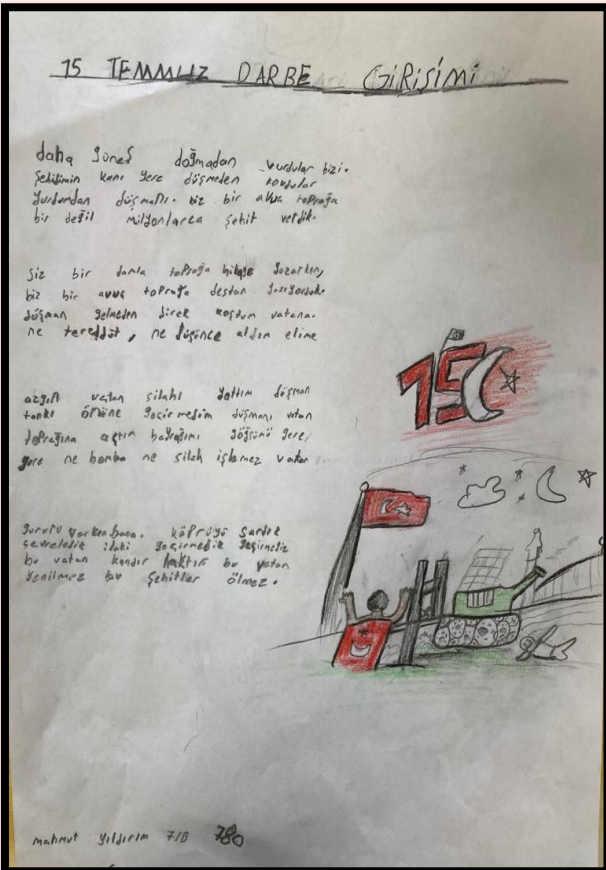 15 TEMMUZ DARBE GİRİŞİMİ
daha güneş doğmadan vurdular bizi.
Şehitimin kanı yere düşmeden kovdular
Yurdumdan düşmanı. biz bir avuç toprağa
bir değil milyonlarca şehit verdik.
Siz bir damla toprağa hikaye yazarken,
biz bir avuç toprağa destan yazıyorduk.
düşman gelmeden direk koştum vatana.
ne tereddüt, ne düşünce aldım elime
vatan silahı yattım düşman
tankı önüne geçirmedim düşmanı vatan
toprağına açtım bayrağımı göğsümü gere
gere ne bomba ne silah işlemez vatan
gururu varken bana. köprüyü sardık
geçirmedik
bu vatan kandır haktır bu vatan
yenilmez bu şehitler ölmez.
15
mahmut yıldırım 7/B 780